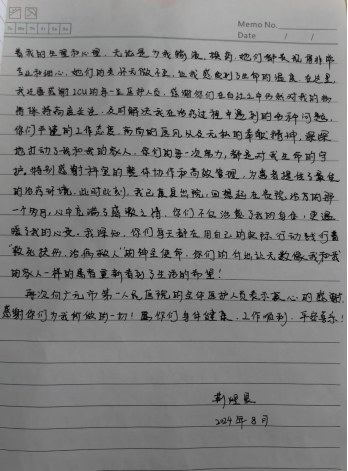 Memo No.
Date / /
Mo Tu We Th Fr Sa Su
着我的生理和心理。无论是为我输液、换药她们都表现得非常
专业和细心,她们的关怀无微不至,让我感受到了生命的温度。在这里,
我还要感谢ICU的每一位医护人员,感谢你们在日日工作仍然对我的病
情保持高度关注,及时解决我在治疗过程中遇到的各种问题。
你们严谨的工作态度、高尚的医风以及无私的奉献精神,深深
地打动了我和我的家人。你们的每一次努力,都是对我生命的守
护。特别感谢科室的整体协作和高效管理,为患者提供了最佳
的治疗环境。此时此刻,我已康复出院,回想起在医院治疗的那
一个多月,心中充满了感激之情。你们不仅治愈了我的身体,更温
暖了我的心灵。我深知,你们每天都在用自己的实际行动践行着
“救死扶伤,治病救人”的神圣使命。你们的付出让无数像我和我
的家人一样的患者重新看到了生活的希望!
再次向广元市第一人民医院的全体医护人员表示衷心的感谢,
感谢你们为我所做的一切!愿你们身体健康、工作顺利、平安喜乐!
2024年8月